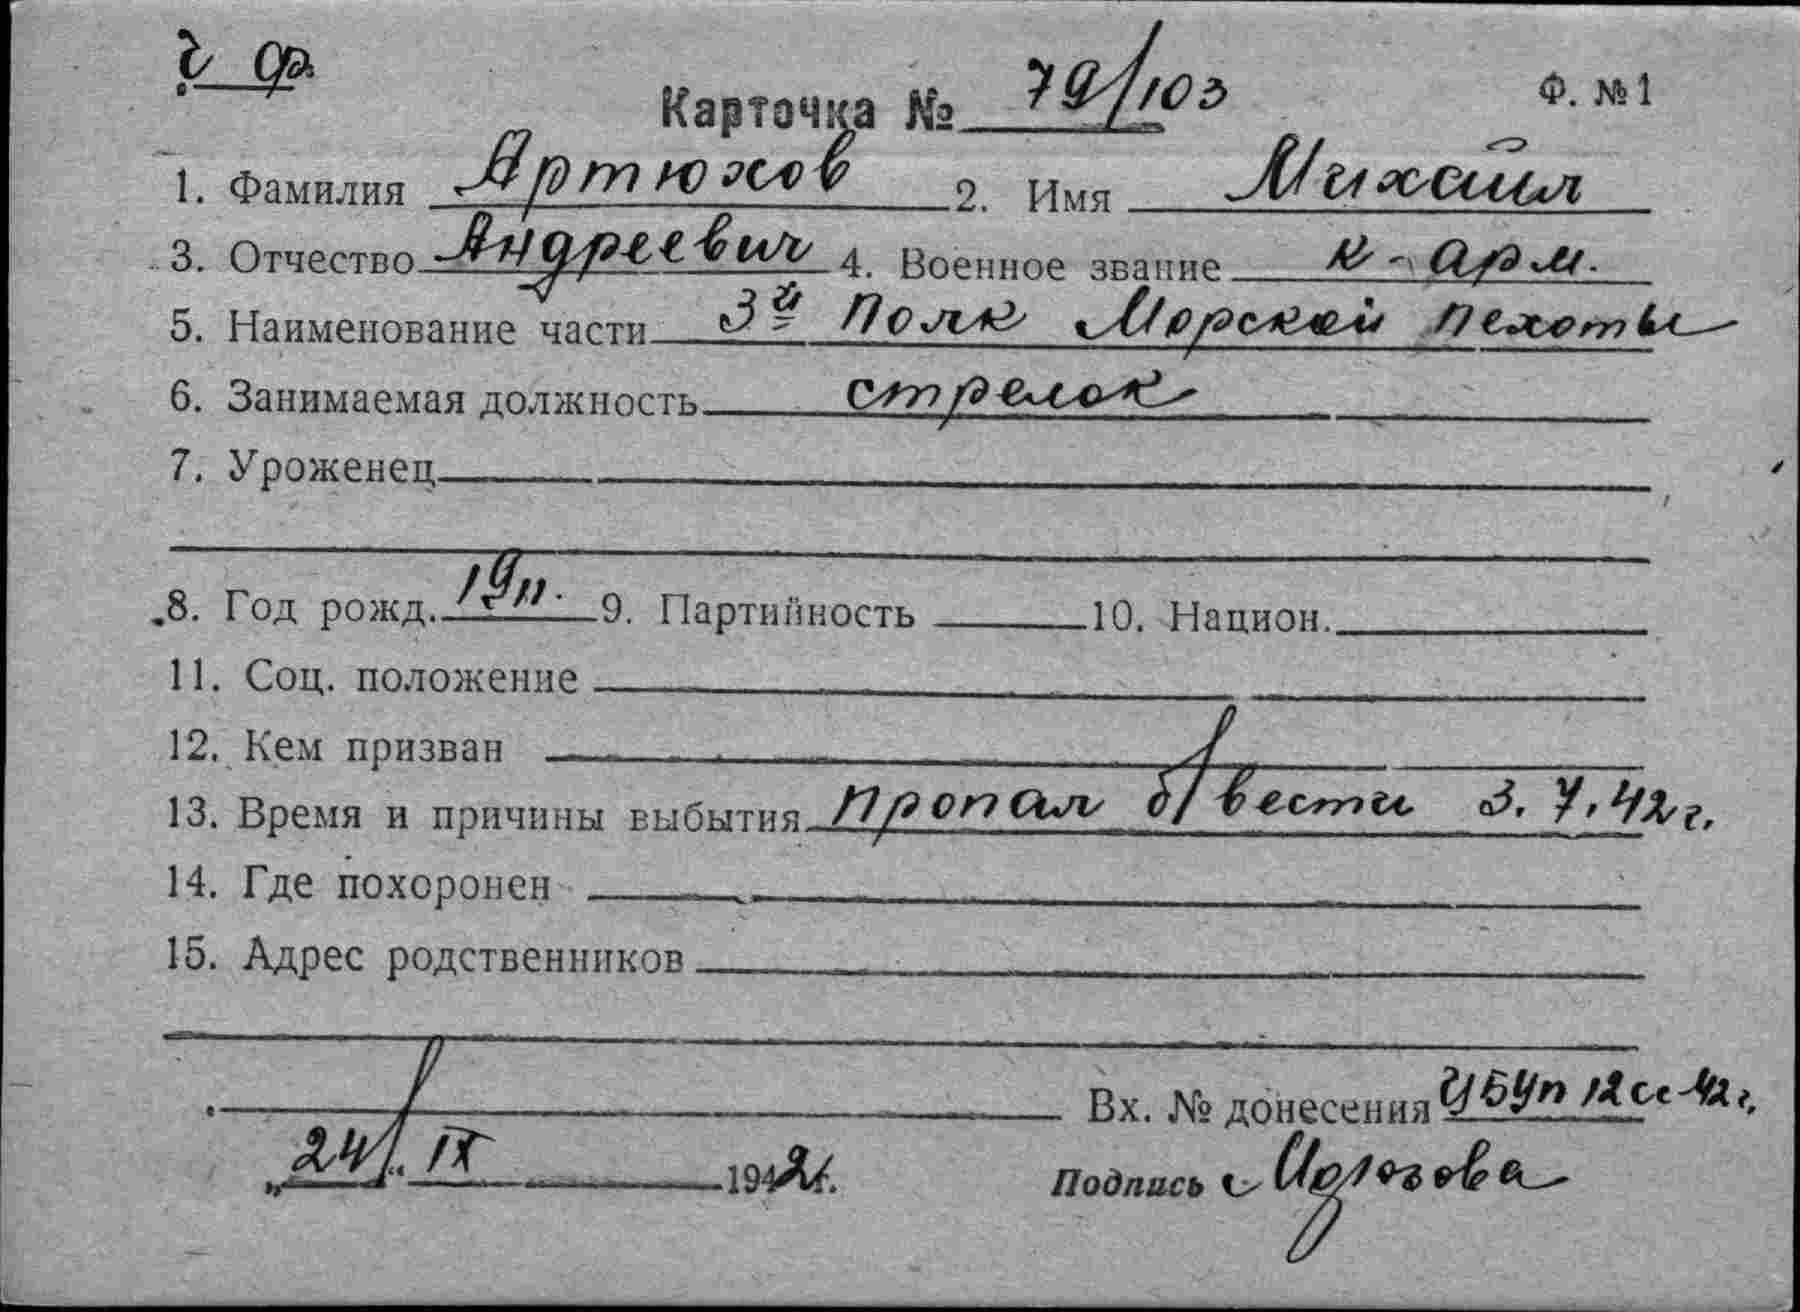 Карточка № 79/103 Ф. №1
1. Фамилия Артюхов 2. Имя Михаил
3. Отчество Андреевич 4. Военное звание к-арм.
5. Наименование части 3й Полк Морской пехоты
6. Занимаемая должность стрелок
7. Уроженец
8. Год рожд. 1911. 9. Партийность 10. Национ.
11. Соц. положение
12. Кем призван
13. Время и причины выбытия Пропал б/вести 3.7.42г.
14. Где похоронен
15. Адрес родственников
Вх. № донесения 12сс-42г.
„24“ IX 1942г. Подпись